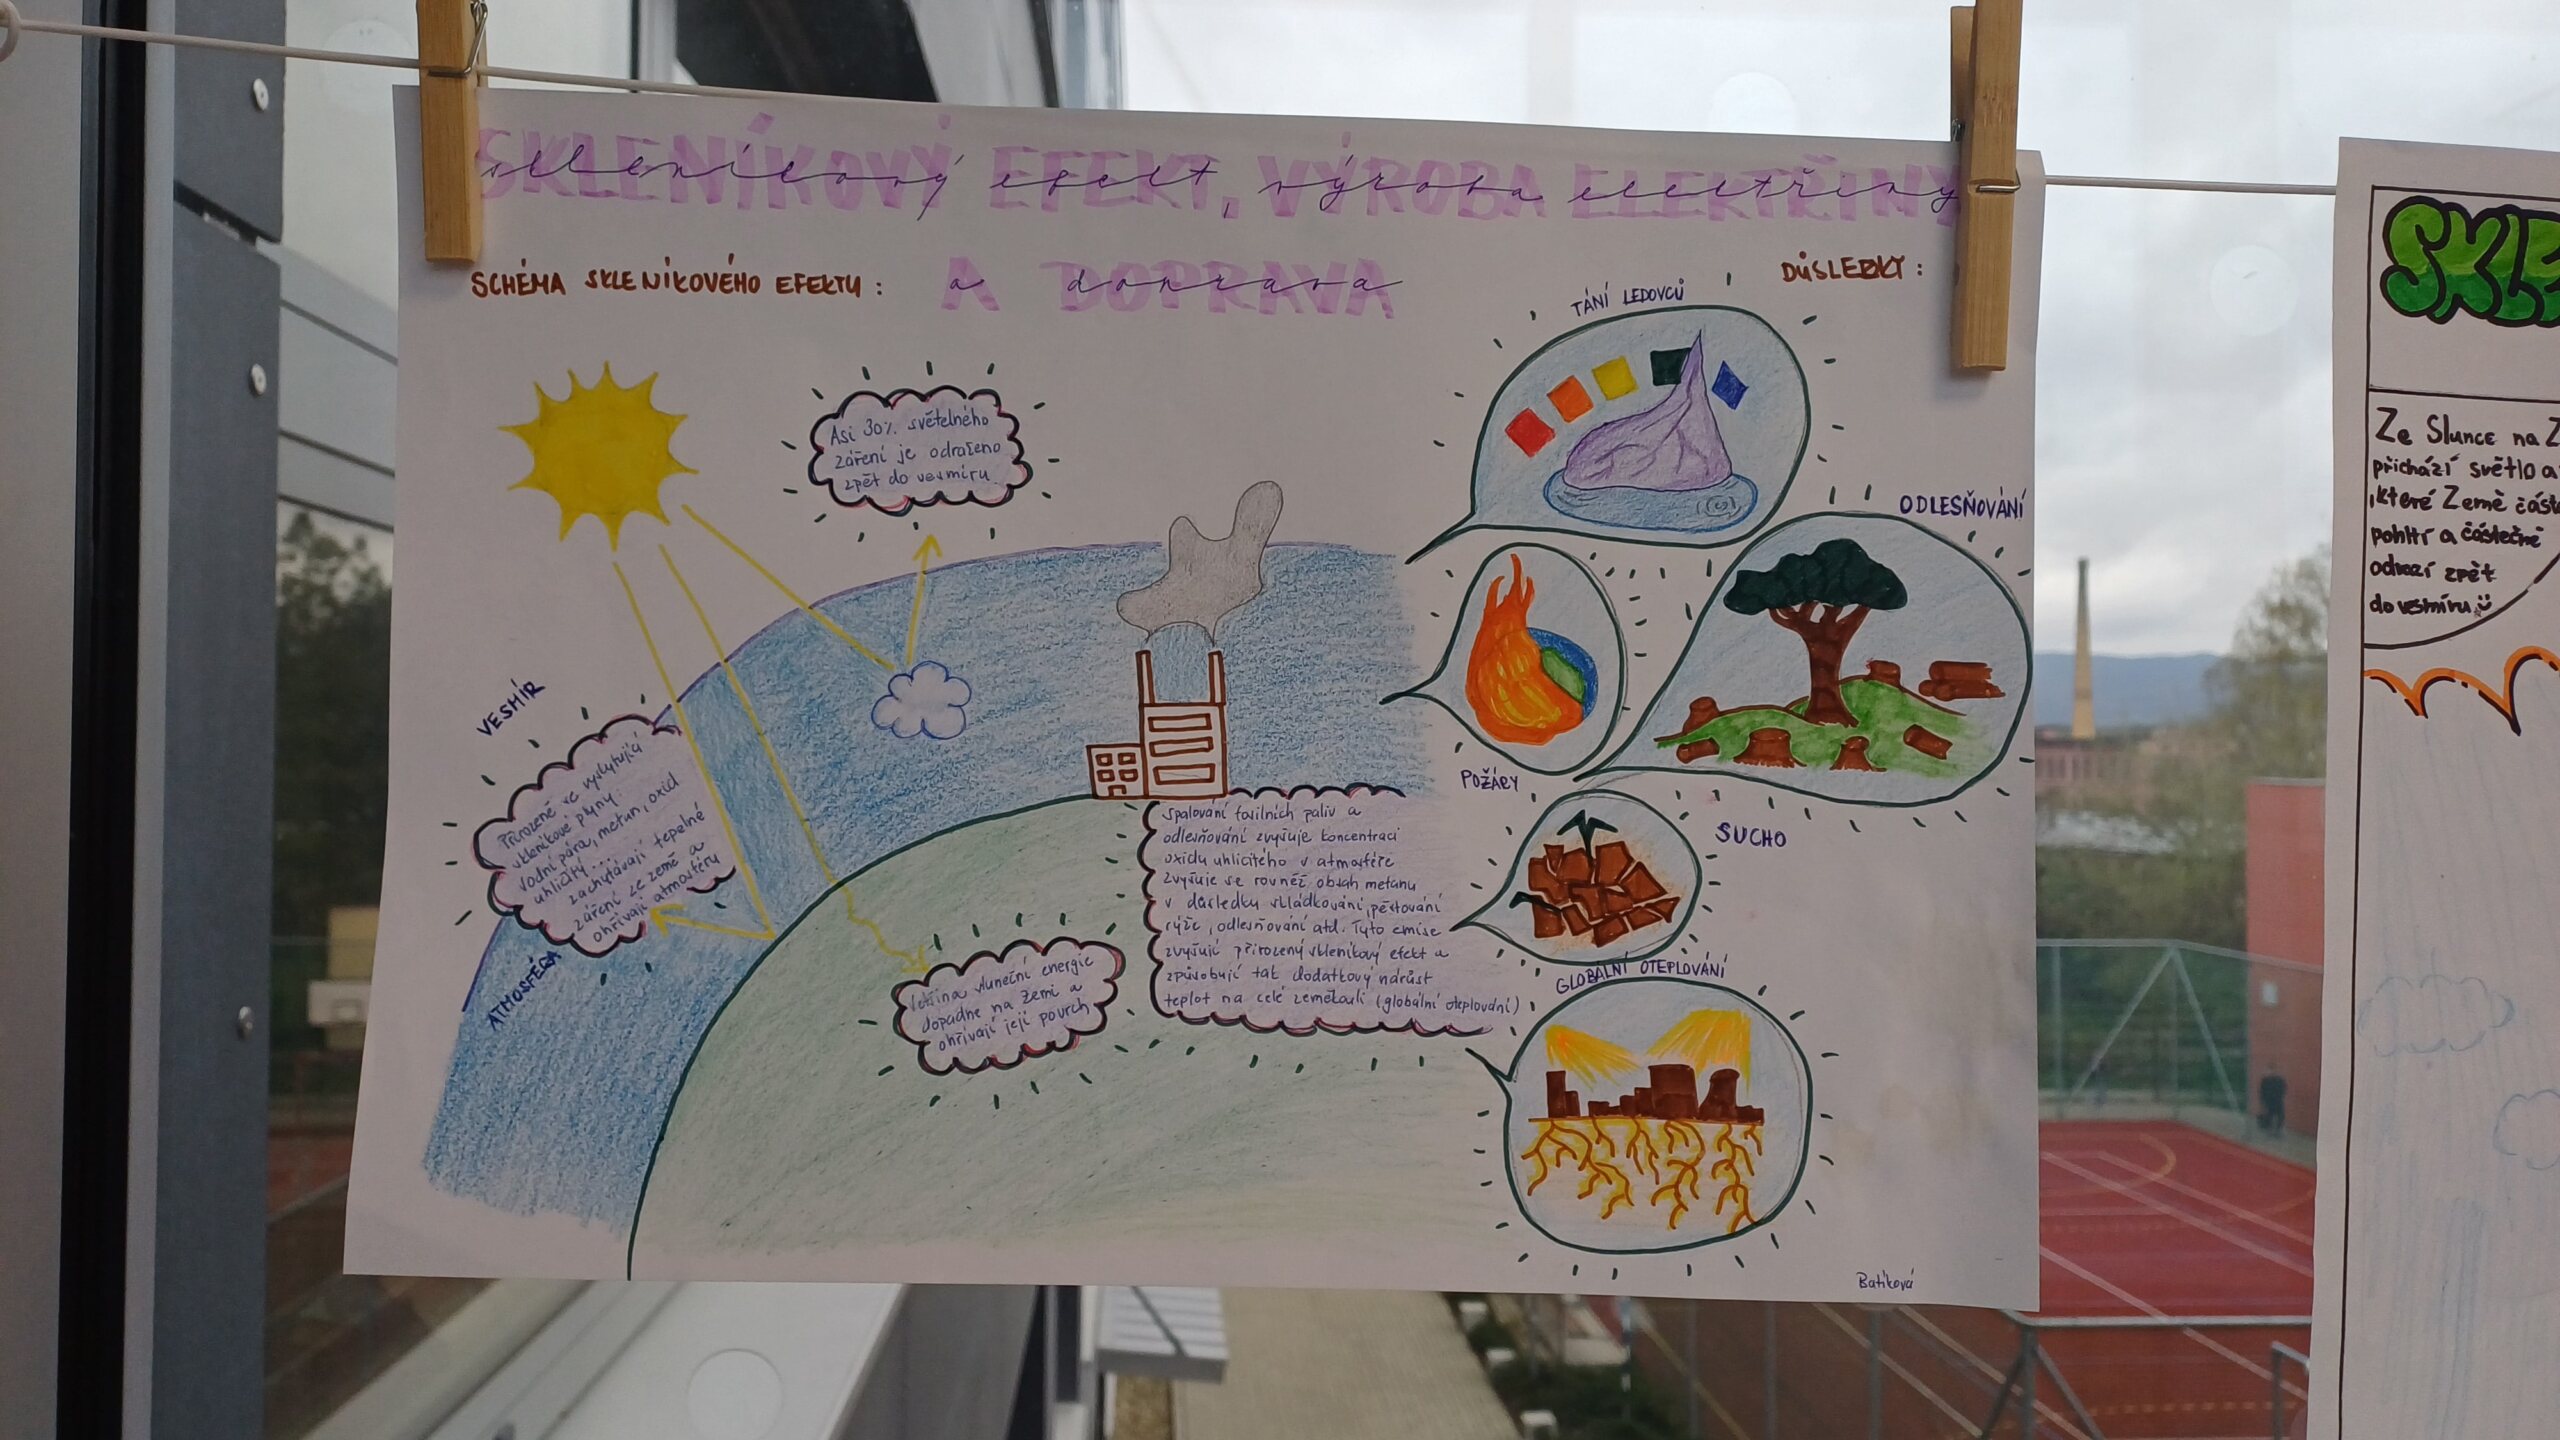 SKLENÍKOVÝ EFEKT, VÝROBA ELEKTŘINY
A DOPRAVA
skleníkový efekt, výroba elektřiny
a doprava
SCHÉMA SKLENÍKOVÉHO EFEKTU:
DŮSLEDKY:
Asi 30% světelného
záření je odraženo
zpět do vesmíru
VESMÍR
Přirozeně se vyskytující
skleníkové plyny:
vodní pára, metan, oxid
uhličitý...
zachytávají tepelné
záření ze země a
ohřívají atmosféru
ATMOSFÉRA
Většina sluneční energie
dopadne na Zemi a
ohřívají její povrch
Spalování fosilních paliv a
odlesňování zvyšuje koncentraci
oxidu uhličitého v atmosféře
zvyšuje se rovněž obsah metanu
v důsledku skládkování, pěstování
rýže, odlesňování atd. Tyto emise
zvyšují přirozený skleníkový efekt a
způsobují tak dodatkový nárůst
teplot na celé zeměkouli (globální oteplování)
TÁNÍ LEDOVCŮ
ODLESŇOVÁNÍ
POŽÁRY
SUCHO
GLOBÁLNÍ OTEPLOVÁNÍ
Batíková
SKLE
Ze Slunce na Z
přichází světlo a
které Země část
pohltí a částečně
odrazí zpět
do vesmíru